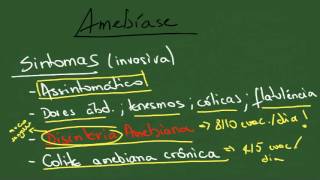 Amebíase
Sintomas (invasiva)
- Assintomático
- Dores abd.; tenesmos; cólicas; flatulência
- Disinteria Amebiana => 8/10 evac./dia!
- Colite amebiana crônica => 4/5 evac./dia